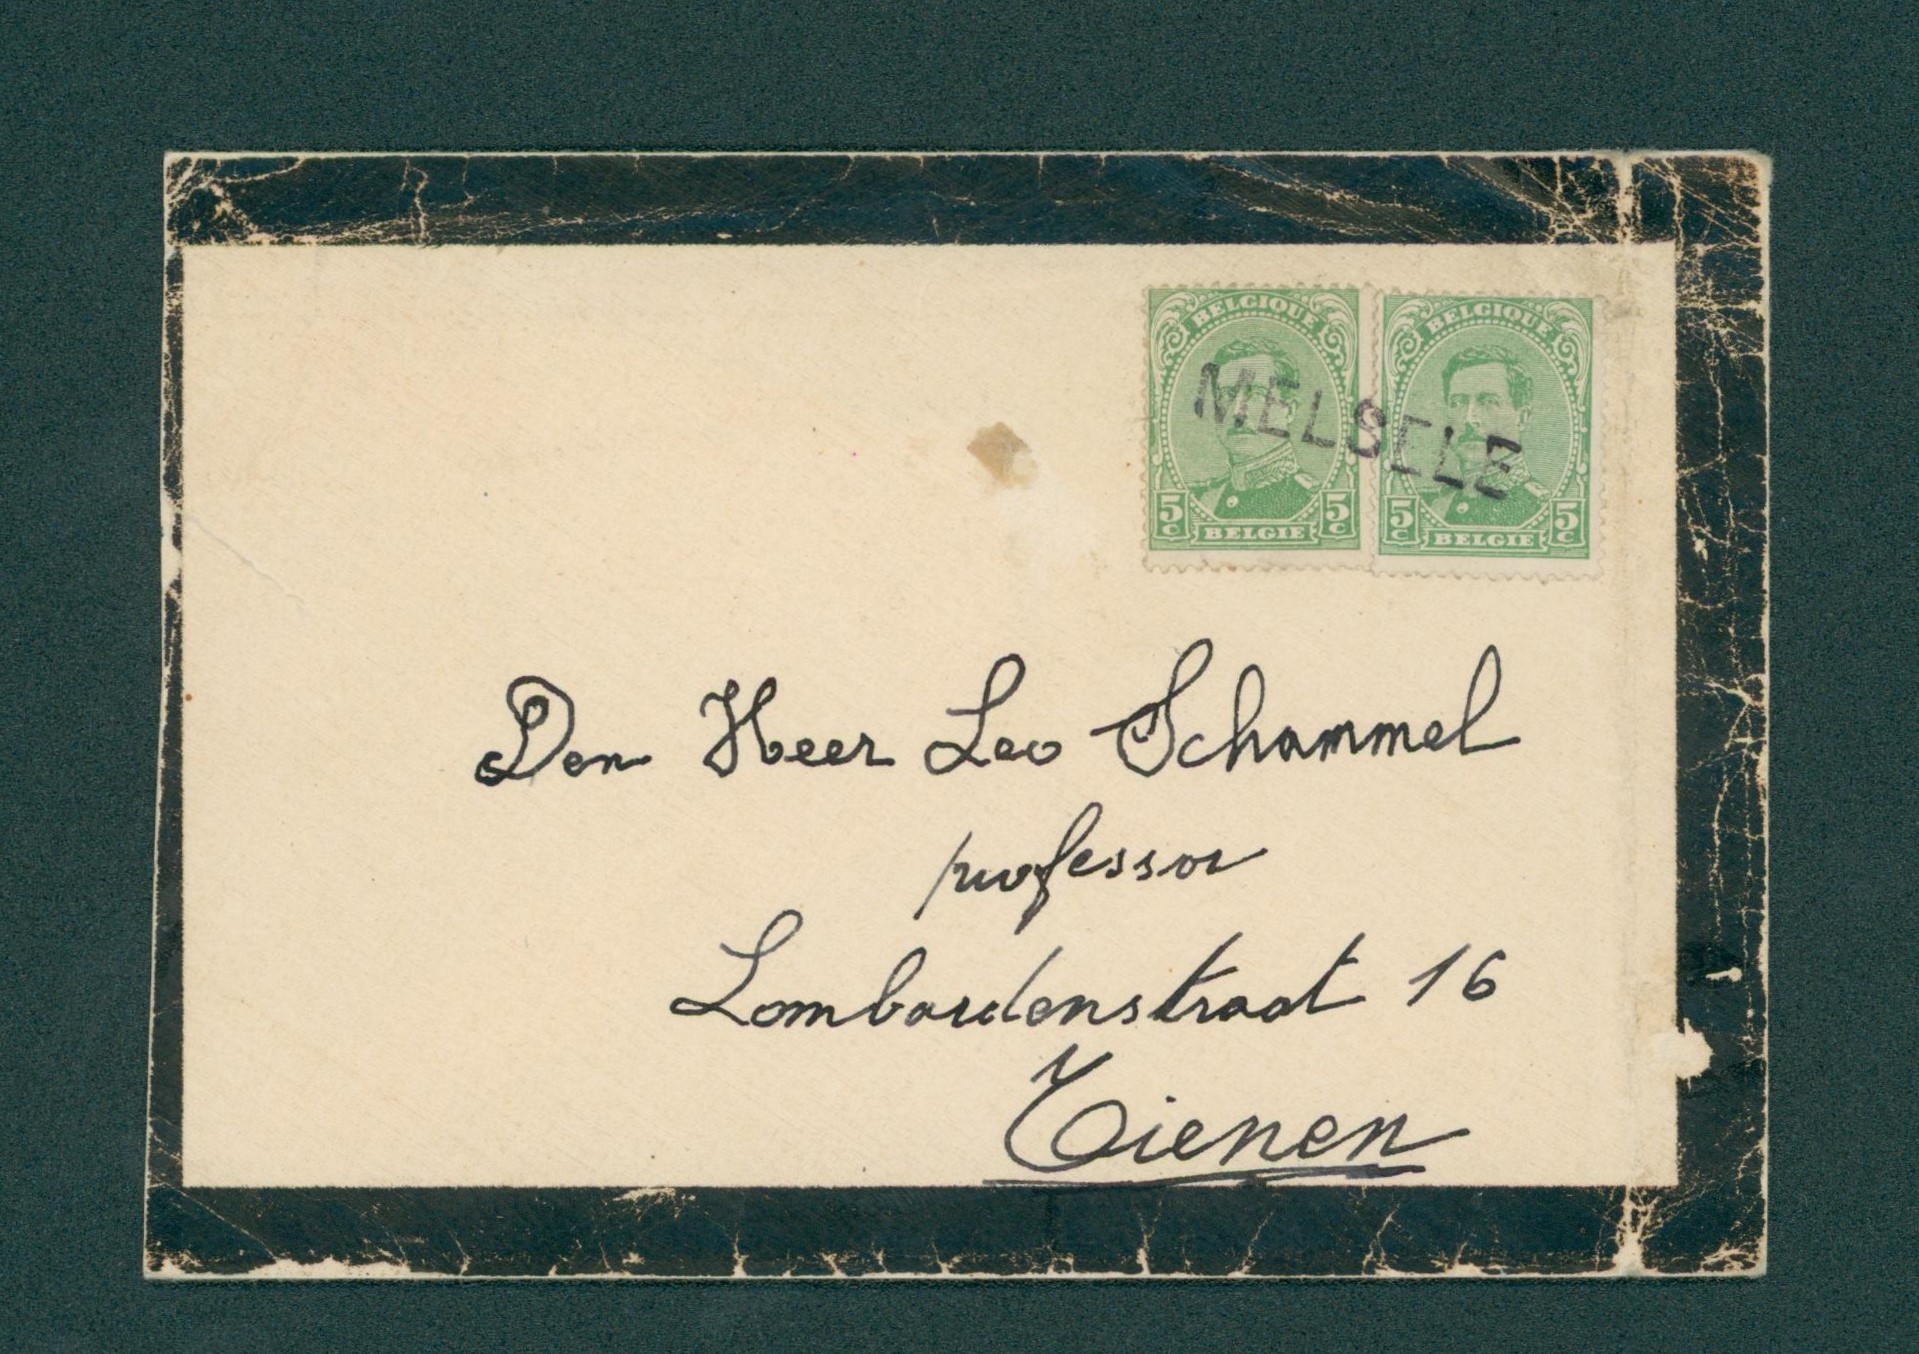 BELGIQUE
5 C BELGIE 5 C
BELGIQUE
5 C BELGIE 5 C
MELSELE
Den Heer Leo Schammel
professor
Lombardenstraat 16
Tienen